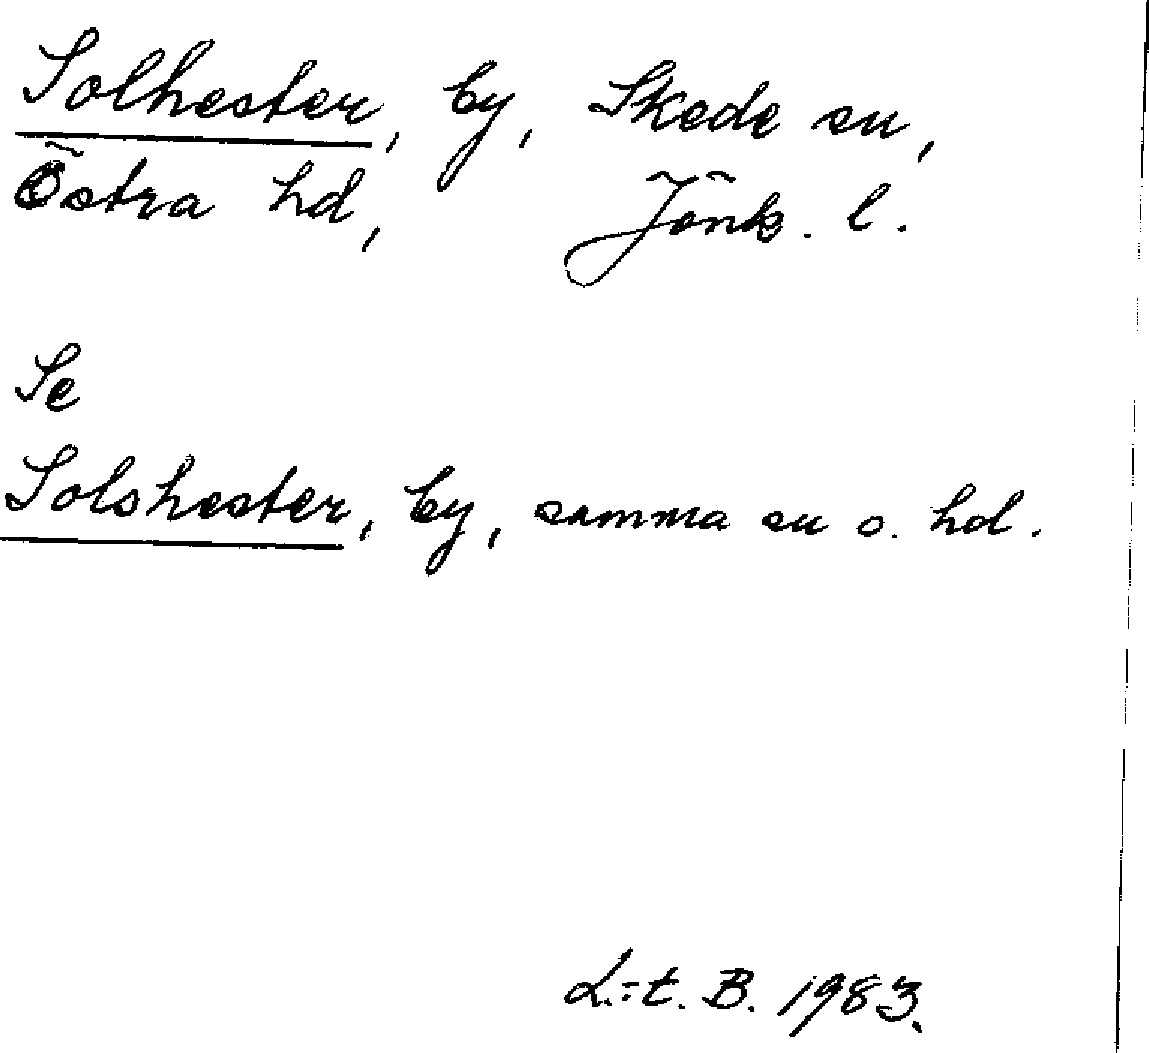 Solhester, by, Skede sn,
Östra hd, Jönk. l.
Se
Solshester, by, samma sn o. hd.
L.-t. B. 1983.